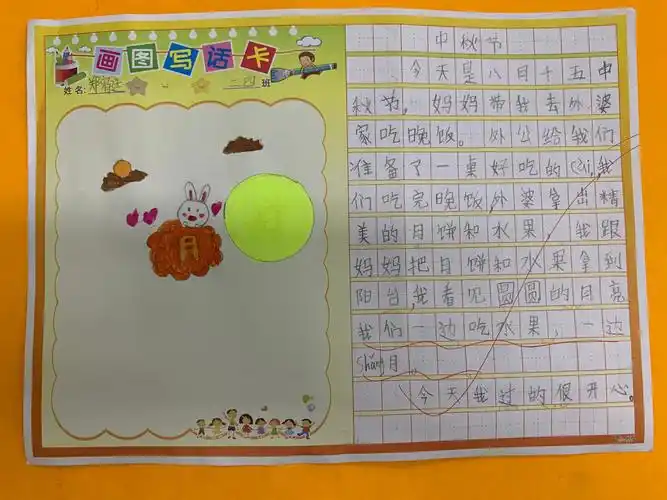 画图写话卡
姓名:
二四班
月
中秋节
今天是八月十五中
秋节，妈妈带我去外婆
家吃晚饭。外公给我们
准备了一桌好吃的cài,我
们吃完晚饭,外婆拿出精
美的月饼和水果。我跟
妈妈把月饼和水果拿到
阳台,我看见圆圆的月亮
我们一边吃水果，一边
shǎng月
今天我过的很开心。